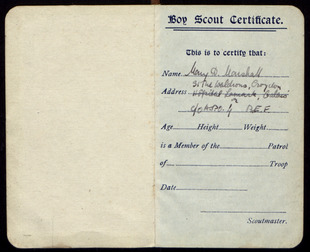 Boy Scout Certificate.
This is to certify that:
Name Mary D. Marshall
31 The Waldrons, Croydon
Address Hospital
c/o A.P.M. B.E.F
Age Height Weight
is a Member of the Patrol
of Troop
Date
Scoutmaster.